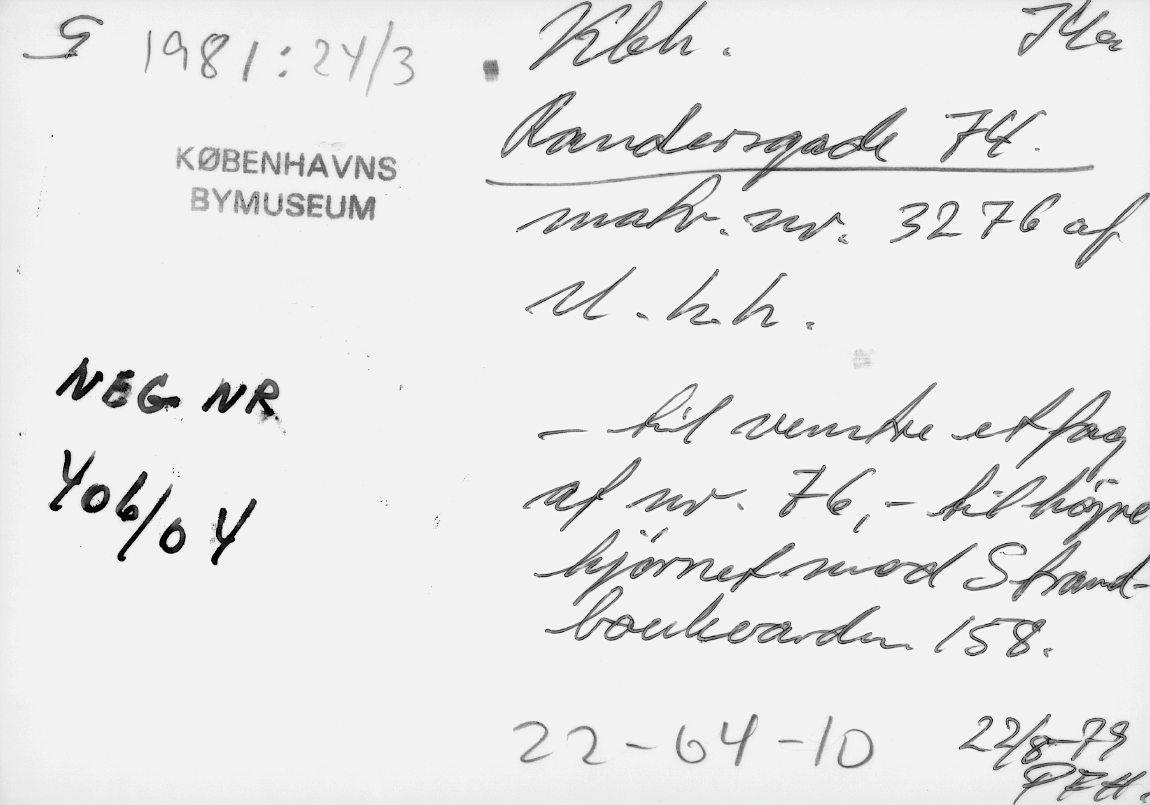 G 1981:24/3
KØBENHAVNS
BYMUSEUM
NEG NR
406/04
Kbh.
Randersgade 74.
matr. nr. 3276 af
U.k.k.
- til venstre et fag
af nr. 76, - til højre
hjørnet mod Strand-
boulevarden 158.
22-64-10
22/8-79
PFH.